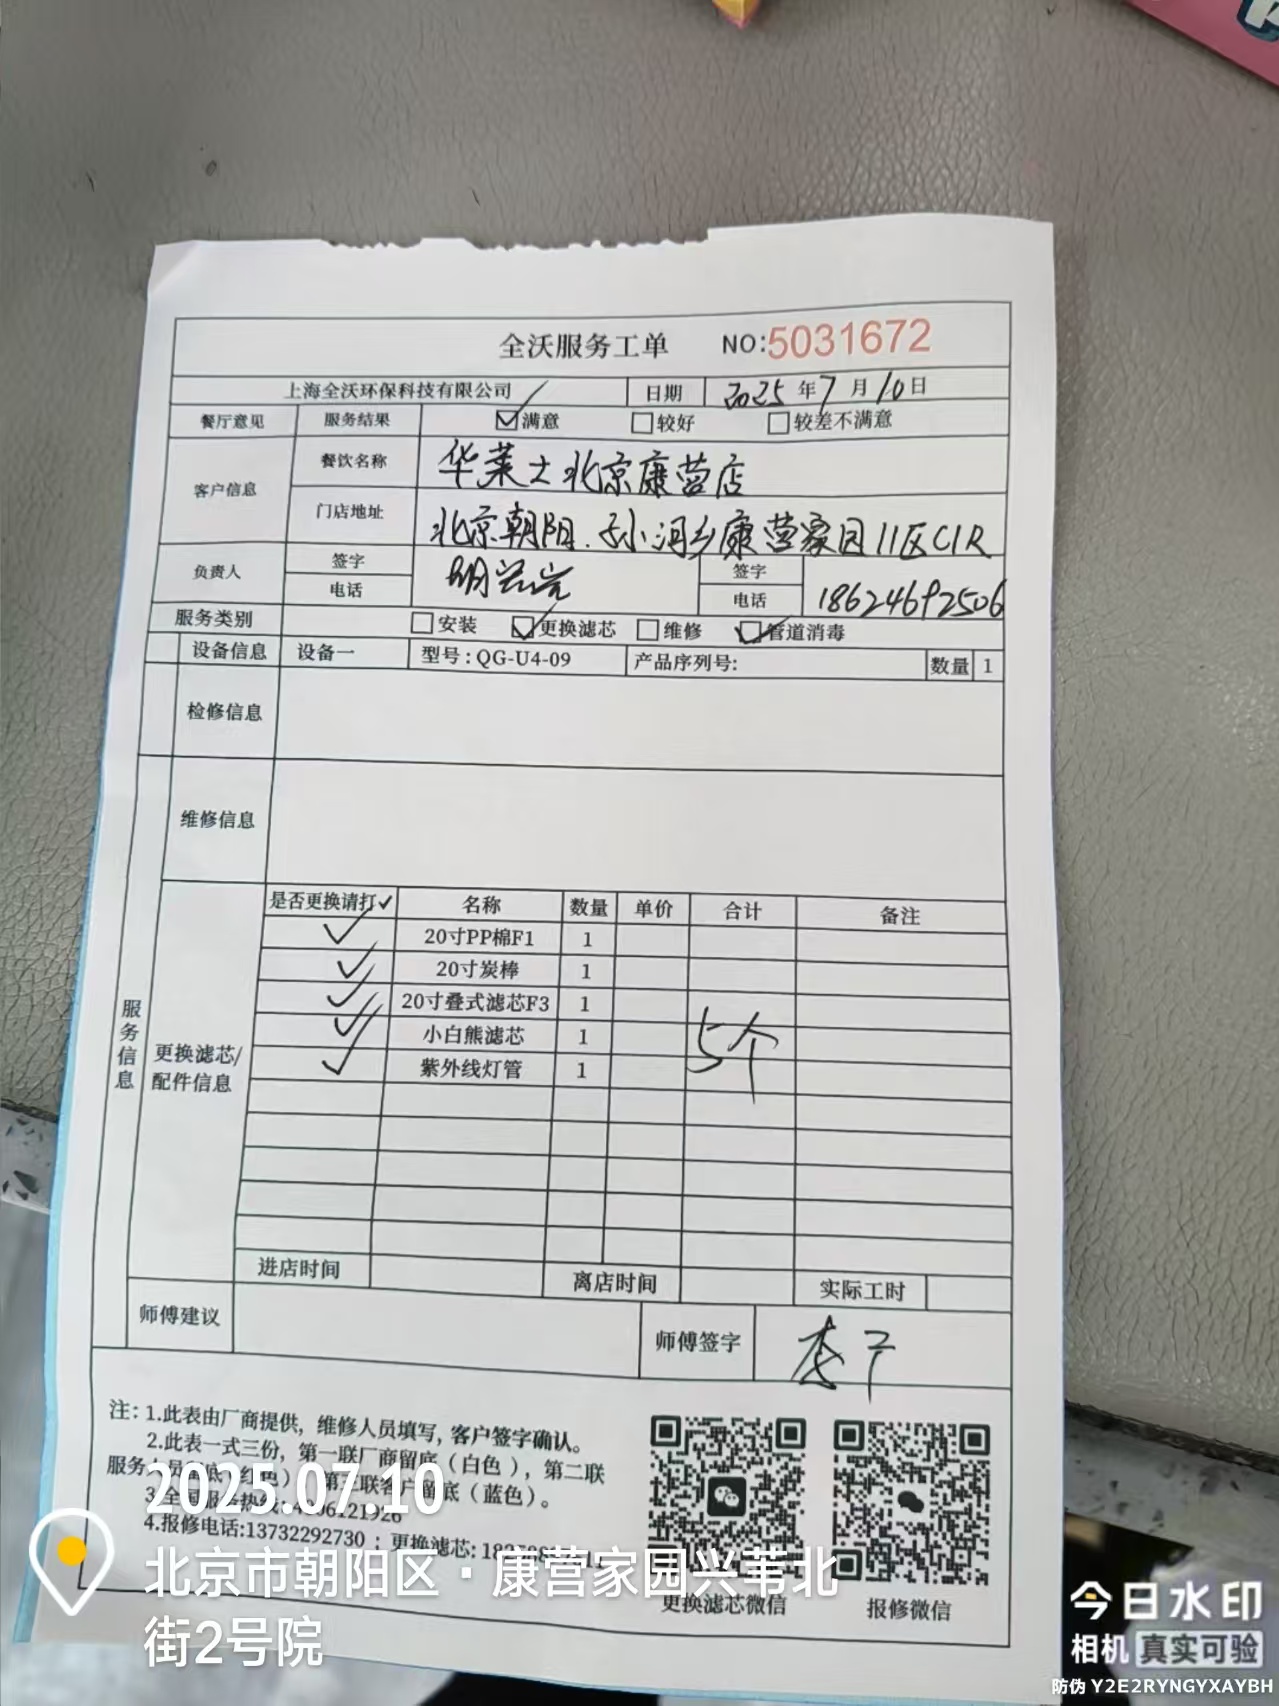 全沃服务工单 NO:5031672
上海全沃环保科技有限公司 日期 2025年7月10日
餐厅意见 服务结果 ☑满意 □较好 □较差不满意
客户信息 餐饮名称 华莱士北京康营店
门店地址 北京朝阳.孙河乡康营家园11区C1R
负责人 签字 签字
电话 电话 18624692506
服务类别 □安装 ☑更换滤芯 □维修 ☑管道消毒
设备信息 设备一 型号:QG-U4-09 产品序列号: 数量 1
检修信息
维修信息
服务信息
更换滤芯/配件信息
是否更换请打✓ 名称 数量 单价 合计 备注
✓ 20寸PP棉F1 1
✓ 20寸炭棒 1
✓ 20寸叠式滤芯F3 1
✓ 小白熊滤芯 1 5个
✓ 紫外线灯管 1
进店时间 离店时间 实际工时
师傅建议 师傅签字
注:1.此表由厂商提供,维修人员填写,客户签字确认。
2.此表一式三份,第一联厂商留底(白色),第二联
服务 员 底(红色) 第三联客户留底(蓝色)。
3.全国服务热线:4006121926
4.报修电话:13732292730 ; 更换滤芯:
更换滤芯微信 报修微信
2025.07.10
北京市朝阳区·康营家园兴苇北
街2号院
今日水印
相机 真实可验
防伪 Y2E2RYNGYXAYBH